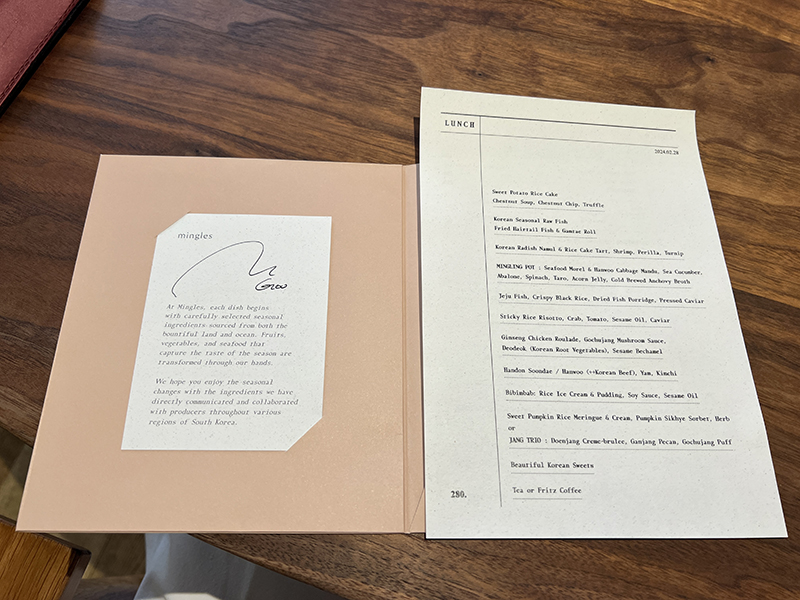 mingles
At Mingles, each dish begins
with carefully selected seasonal
ingredients sourced from both the
bountiful land and ocean. Fruits,
vegetables, and seafood that
capture the taste of the season are
transformed through our hands.
We hope you enjoy the seasonal
changes with the ingredients we have
directly communicated and collaborated
with producers throughout various
regions of South Korea.
LUNCH
2024.02.28
Sweet Potato Rice Cake
Chestnut Soup, Chestnut Chip, Truffle
Korean Seasonal Raw Fish
Fried Hairtail Fish & Gamtae Roll
Korean Radish Namul & Rice Cake Tart, Shrimp, Perilla, Turnip
MINGLING POT : Seafood Morel & Hanwoo Cabbage Mandu, Sea Cucumber,
Abalone, Spinach, Taro, Acorn Jelly, Cold Brewed Anchovy Broth
Jeju Fish, Crispy Black Rice, Dried Fish Porridge, Pressed Caviar
Sticky Rice Risotto, Crab, Tomato, Sesame Oil, Caviar
Ginseng Chicken Roulade, Gochujang Mushroom Sauce,
Deodeok (Korean Root Vegetables), Sesame Bechamel
Handon Soondae / Hanwoo (++Korean Beef), Yam, Kimchi
Bibimbab: Rice Ice Cream & Pudding, Soy Sauce, Sesame Oil
Sweet Pumpkin Rice Meringue & Cream, Pumpkin Sikhye Sorbet, Herb
or
JANG TRIO : Doenjang Creme-brulee, Ganjang Pecan, Gochujang Puff
Beautiful Korean Sweets
Tea or Fritz Coffee
280.